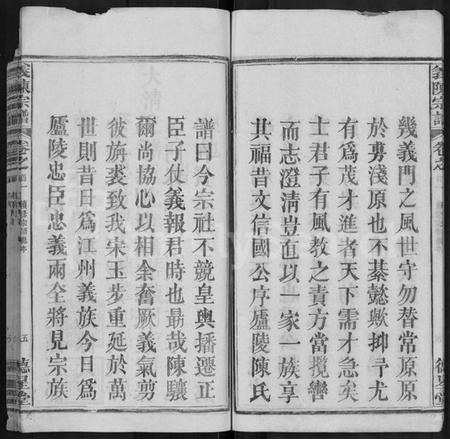 義陳宗譜
卷之
幾義門之風世守勿替常原原
於勇淺原也不綦懿歟抑予尤
有為茂才進者天下需才急矣
士君子有風教之責方當攬轡
而志澄清豈但以一家一族享
其福昔文信國公序廬陵陳氏
德星堂
譜曰今宗社不競皇輿播遷正
臣子仗義報君時也勗哉陳驤
爾尚協心以相余奮厥義氣剪
彼旃裘致我宋玉步重延於萬
世則昔日為江州義族今日為
廬陵忠臣忠義兩全將見宗族
義陳宗譜
卷之
五
德星堂